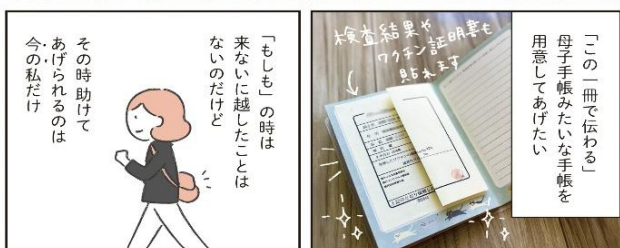 「この一冊で伝わる」
母子手帳みたいな手帳を
用意してあげたい
検査結果や
ワクチン証明書も
貼れます
「もしも」の時は
来ないに越したことは
ないのだけど
その時 助けて
あげられるのは
今の私だけ